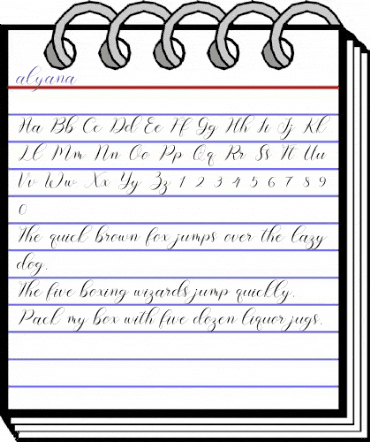 alyana
Aa Bb Cc Dd Ee Ff Gg Hh Ii Jj Kk
Ll Mm Nn Oo Pp Qq Rr Ss Tt Uu
Vv Ww Xx Yy Zz 1 2 3 4 5 6 7 8 9
0
The quick brown fox jumps over the lazy
dog.
The five boxing wizards jump quickly.
Pack my box with five dozen liquor jugs.